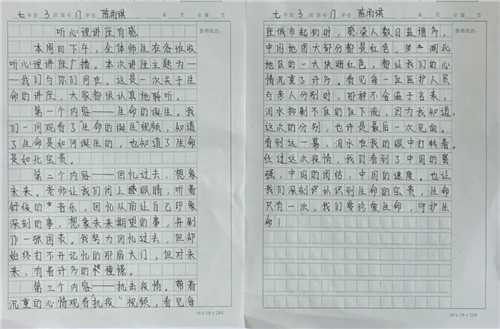 七 年级 3 班 座号 17 学生 陈雨琪
听心视讲座有感
本周四下午，全体师生在各班收
听心视讲座广播。本次讲座主题为—
—我们与你们同在。这是一次关于生
命的讲座，大家都很认真地聆听。
第一个内容——生命的诞生。我
们一同观看了《生命的诞生》视频，知道
了生命是如何诞生的，也知道了生命
是如此宝贵。
第二个内容——回忆过去，想象
未来。老师让我们闭上眼睛，听着
舒缓的音乐，回忆从前让自己印象
深刻的事，想象未来期望的事，并制
作一张图表。我努力回忆过去，但却
始终打不开记忆的那扇大门，但对未
来，有着许多的憧憬。
第三个内容——抗击疫情。带着
沉重的心情观看"抗疫"视频，看见每
七 年级 3 班 座号 17 学生 陈雨琪
座城市起初时，感染人数日益增多。
中国地图大部分都是红色，湖北
地区的一大块暗红色，都让我们的心
情沉重了许多。看见每一位医护人员
与亲人分别时，那种不舍溢于言表，
泪水抑制不住的往下流，因为我知道
这次的分别，也许是最后一次见面。
看到这一幕，泪水在我的眼中打转着。
经过这次疫情，我们看到了中国的
强，中国的团结，中国的速度，也让
我们深刻认识到生命的宝贵，生命
只有一次，我们要珍爱生命，守护生
命！